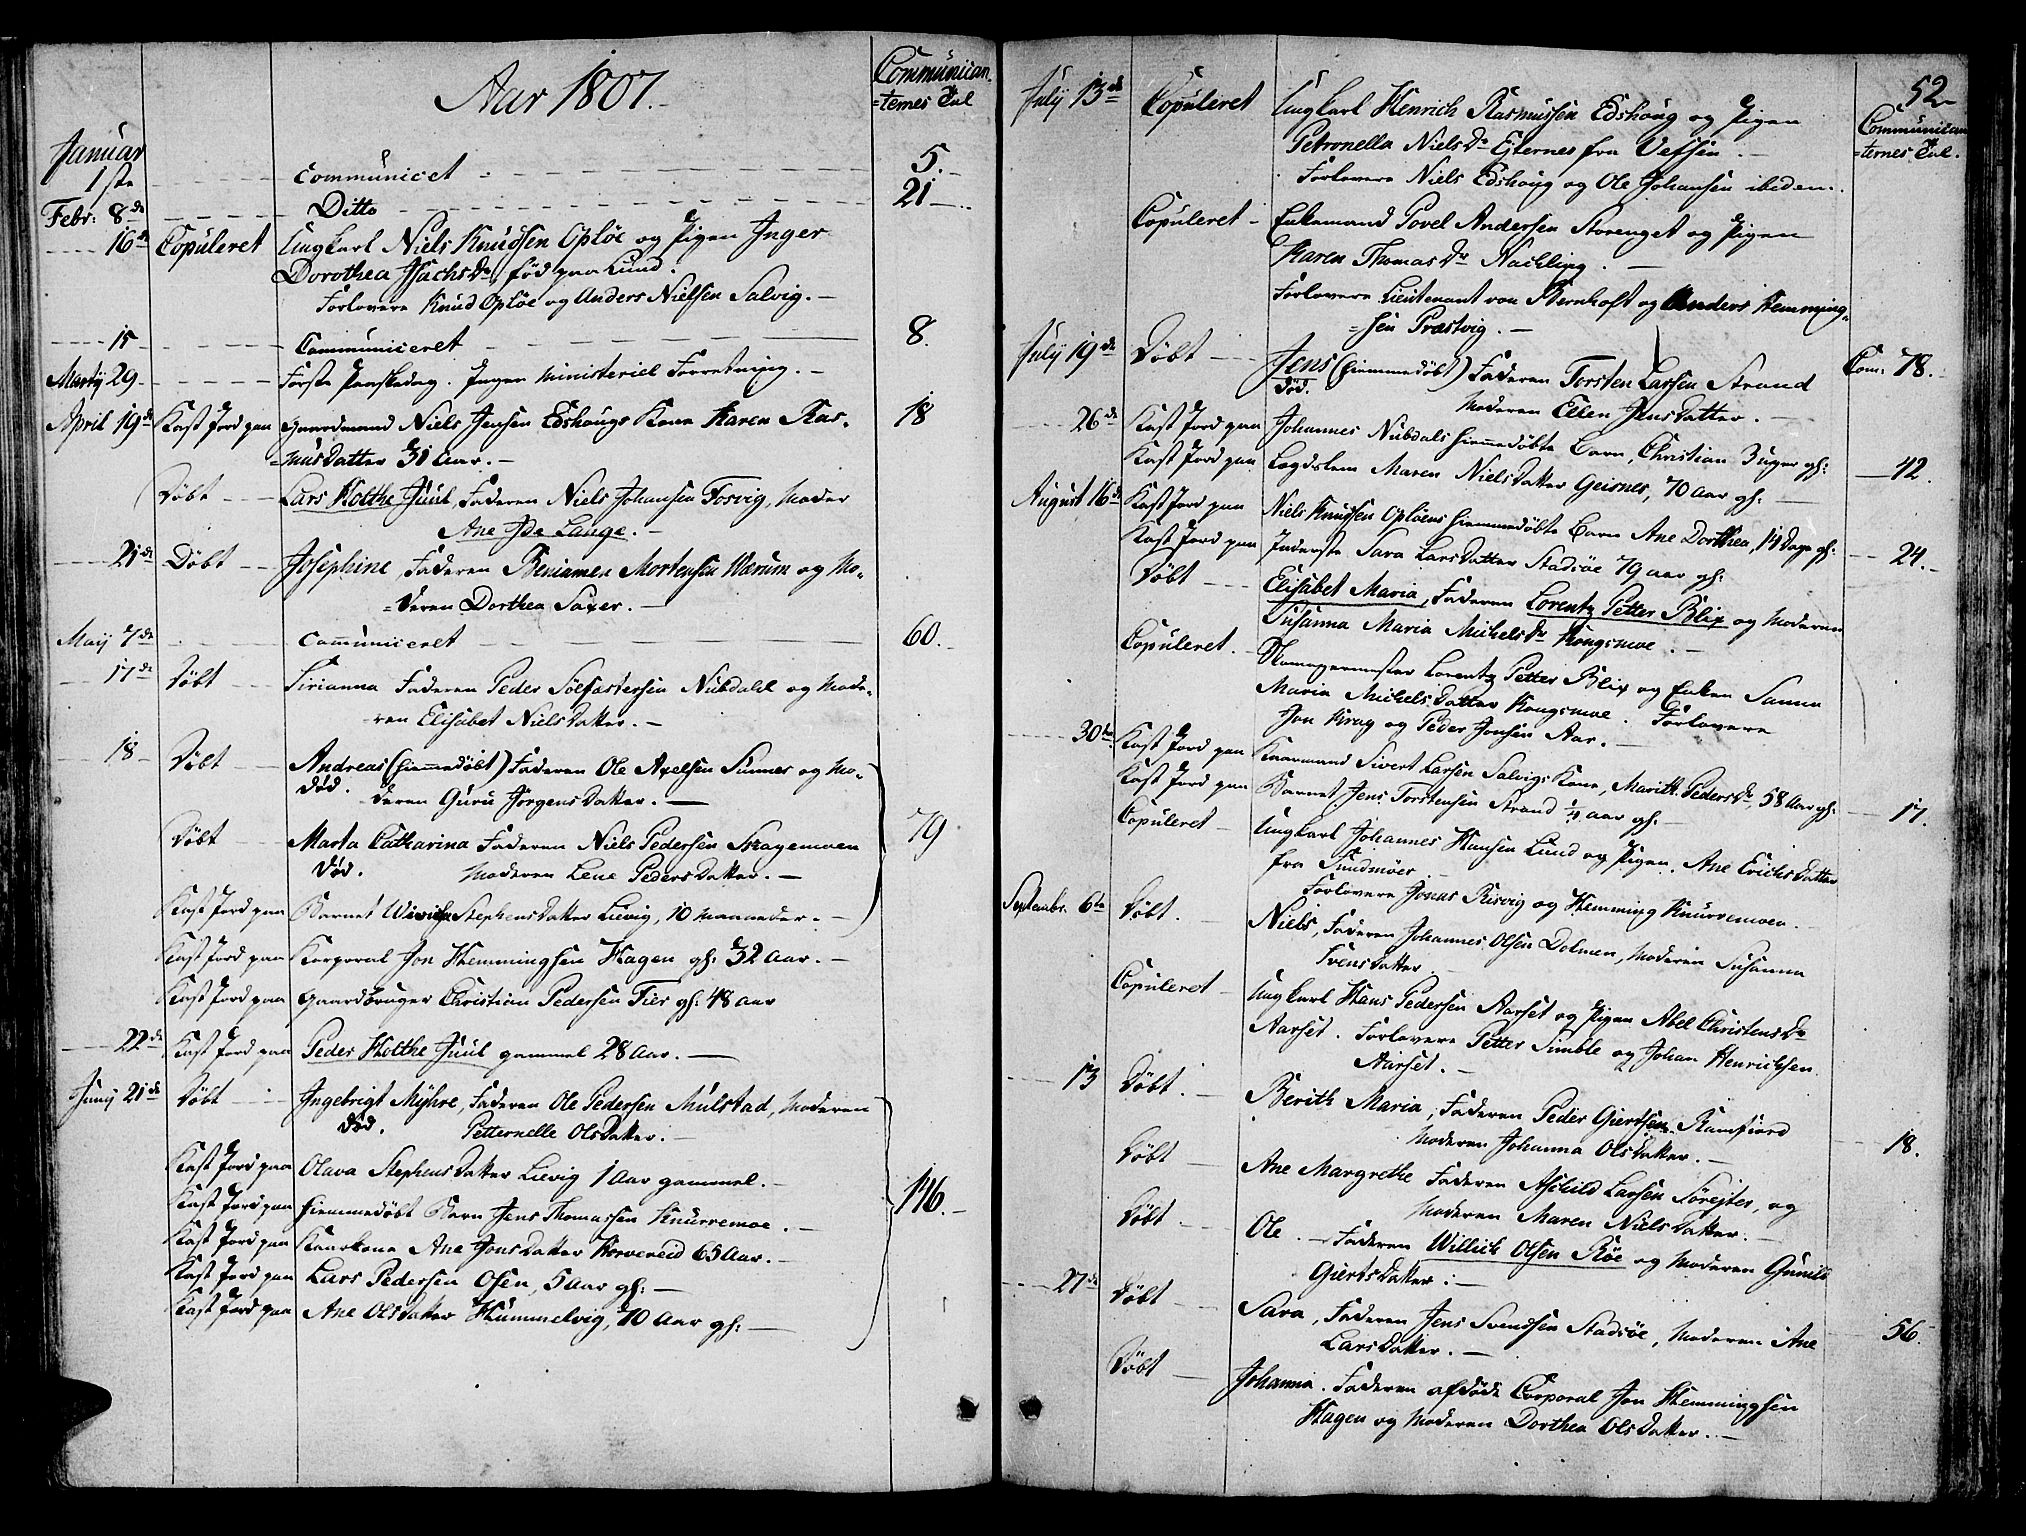 Aar 1807.
Communican-
=ternes Tal
Januar
1ste communicet 5.
Febr: 8de Ditto 21
16de Copuleret Ungkarl Niels Knudsen Opløe og Pigen Inger
Dorothea Isachs Dr fød paa Lund.
Forlovere Knud Opløe og Anders Nielsen Salvig.
15 Communiceret 8.
Martij 29 Første Paaskedag. Ingen Ministeriel Forretning.
April 19de Kast Jord paa Gaardmand Niels Jensen Edshougs Kone Karen Ras- 18
=musdatter 31 Aar.
Døbt Lars Holthe Juul, Faderen Niels Johansen Fosvig, Moder
Ane Ide Lange.
21de Døbt Josephine Faderen Beniamen Mortensen Wærum og Mo-
=deren Dorthea Saxer.
Maij 7de Communiceret 60.
17de Døbt Sirianna Faderen Peder Sølfæstersen Nubdahl og Mode-
=ren Elisabet Nielsdatter.
18 Døbt Andreas (hiemmedøbt) Faderen Ole Axelsen Sunnes og Mo-
død. =deren Guru Jørgensdatter.
Døbt Marta Catharina Faderen Niels Pedersen Skagemoen 79
død. Moderen Lene Pedersdatter.
Kast Jord paa Barnet Stephensdatter Lievig, 10 Maaneder.
Kast Jord paa Korporal Jon Hemmingsen Hagen gl: 32 Aar.
Kast Jord paa Gaardbruger Christian Pedersen Fier gl: 48 Aar
22de Kast Jord paa Peder Holthe Juul gammel 28 Aar.
Junij 21de Døbt Ingebrigt Myhre, Faderen Ole Pedersen Mulstad, Moderen
død. Petternelle Olsdatter.
Kast Jord paa Olava Stephensdatter Lievig 1 Aar gammel.
Kast Jord paa hiemmedøbt Barn Jens Thomassen Knurremoe. 146.
Kast Jord paa Kaarkone Ane Jonsdatter Horvereid 65 Aar.
Kast Jord paa Lars Pedersen Osen, 5 Aar gl:
Kast Jord paa Ane Olsdatter Hummelvig, 70 Aar gl:
52
Communican
=ternes Tal.
Julij 13de Copuleret Ungkarl Henrich Rasmussen Edshoug og Pigen
Petronella Niels Dr Eiternes fra Vefsen.
Forlovere Niels Edshoug og Ole Johansen ibiden.
Copuleret Enkemand Povel Andersen Storenget og Pigen
Karen Thomas Dr Nachling.
Forlovere Lieutenant von Bernhoft og Anders Hemming-
=sen Præstvig.
Julij 19de Døbt Jens (hiemmedøbt) Faderen Torsten Larsen Strand Com: 78.
død. Moderen Ellen Jensdatter.
26de Kast Jord paa Johannes Nubdals hiemmedøbte Barn, Christian 3 Uger gl:
Kast Jord paa Lægdslem Maren Nielsdatter Geisnes, 70 Aar gl: 42.
August 16de Kast Jord paa Niels Knudsen Opløens hiemmedøbte Barn Ane Dorthea, 14 Dage gl:
Kast Jord paa Inderste Sara Larsdatter Stadsøe 79 Aar gl: 24.
Døbt Elisabet Maria, Faderen Lorentz Petter Blix og Moderen
Susanna Maria Michels Dr Kongsmoe.
Copuleret Skomagermester Lorentz Petter Blix og Enken Sanna
Maria Michelsdatter Kongsmoe. Forlovere
Jon Krag og Peder Jonsen Aar.
30te Kast Jord paa Kaarmand Sivert Larsen Salvigs Kone, Marith Peders Dr, 58 Aar gl:
Kast Jord paa Barnet Jens Torstensen Strand 1/4 Aar gl: 17.
Copuleret Ungkarl Johannes Hansen Lund og Pigen Ane Erichsdatter
fra Sundmøer.
Forlovere Jonas Risvig og Hemming Knurremoen.
Septembr. 6te Døbt Niels, Faderen Johannes Olsen Dolmen, Moderen Susanna
Svensdatter.
Copuleret Ungkarl Hans Pedersen Aarset og Pigen Abel Christens Dr
Aarset. Forlovere Petter Simble og Johan Henrichsen
Aarset.
13 Døbt Berith Maria, Faderen Peder Giertsen Ramfiord
Moderen Johanna Olsdatter. 18.
Døbt Ane Margrethe Faderen Aschild Larsen Sørejter, og
Moderen Maren Nielsdatter.
Døbt Ole. Faderen Willich Olsen Røe og Moderen Gunild
Giertsdatter.
27de Døbt Sara, Faderen Jens Svendsen Stadsøe, Moderen Ane 56.
Larsdatter.
Døbt Johanna. Faderen afdøde Corporal Jon Hemmingsen
Hagen og Moderen Dorthea Olsdatter.